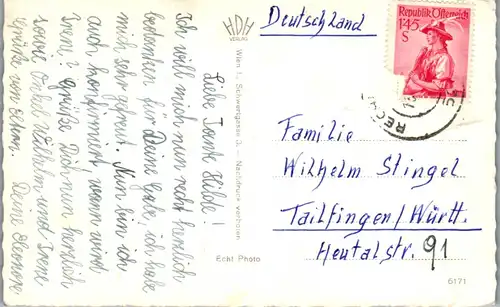 Liebe Tante Hilde!
Ich will mich nun recht herzlich
bedanken für Deine Gabe, ich habe
mich sehr gefreut. Nun bin ich
auch konfirmiert, wann wird
Irene? Grüße Dich nun herzlich
sowie Onkel Wilhelm und Irene
Grüße von Eltern. Deine Eleonore
HDH
VERLAG
Wien 1., Schwertgasse 3. - Nachdruck verboten.
Echt Photo
Deutschland
Republik Österreich
1.45
S
Familie
Wilhelm Stingel
Tailfingen/Württ.
Heutalstr. 91
6171